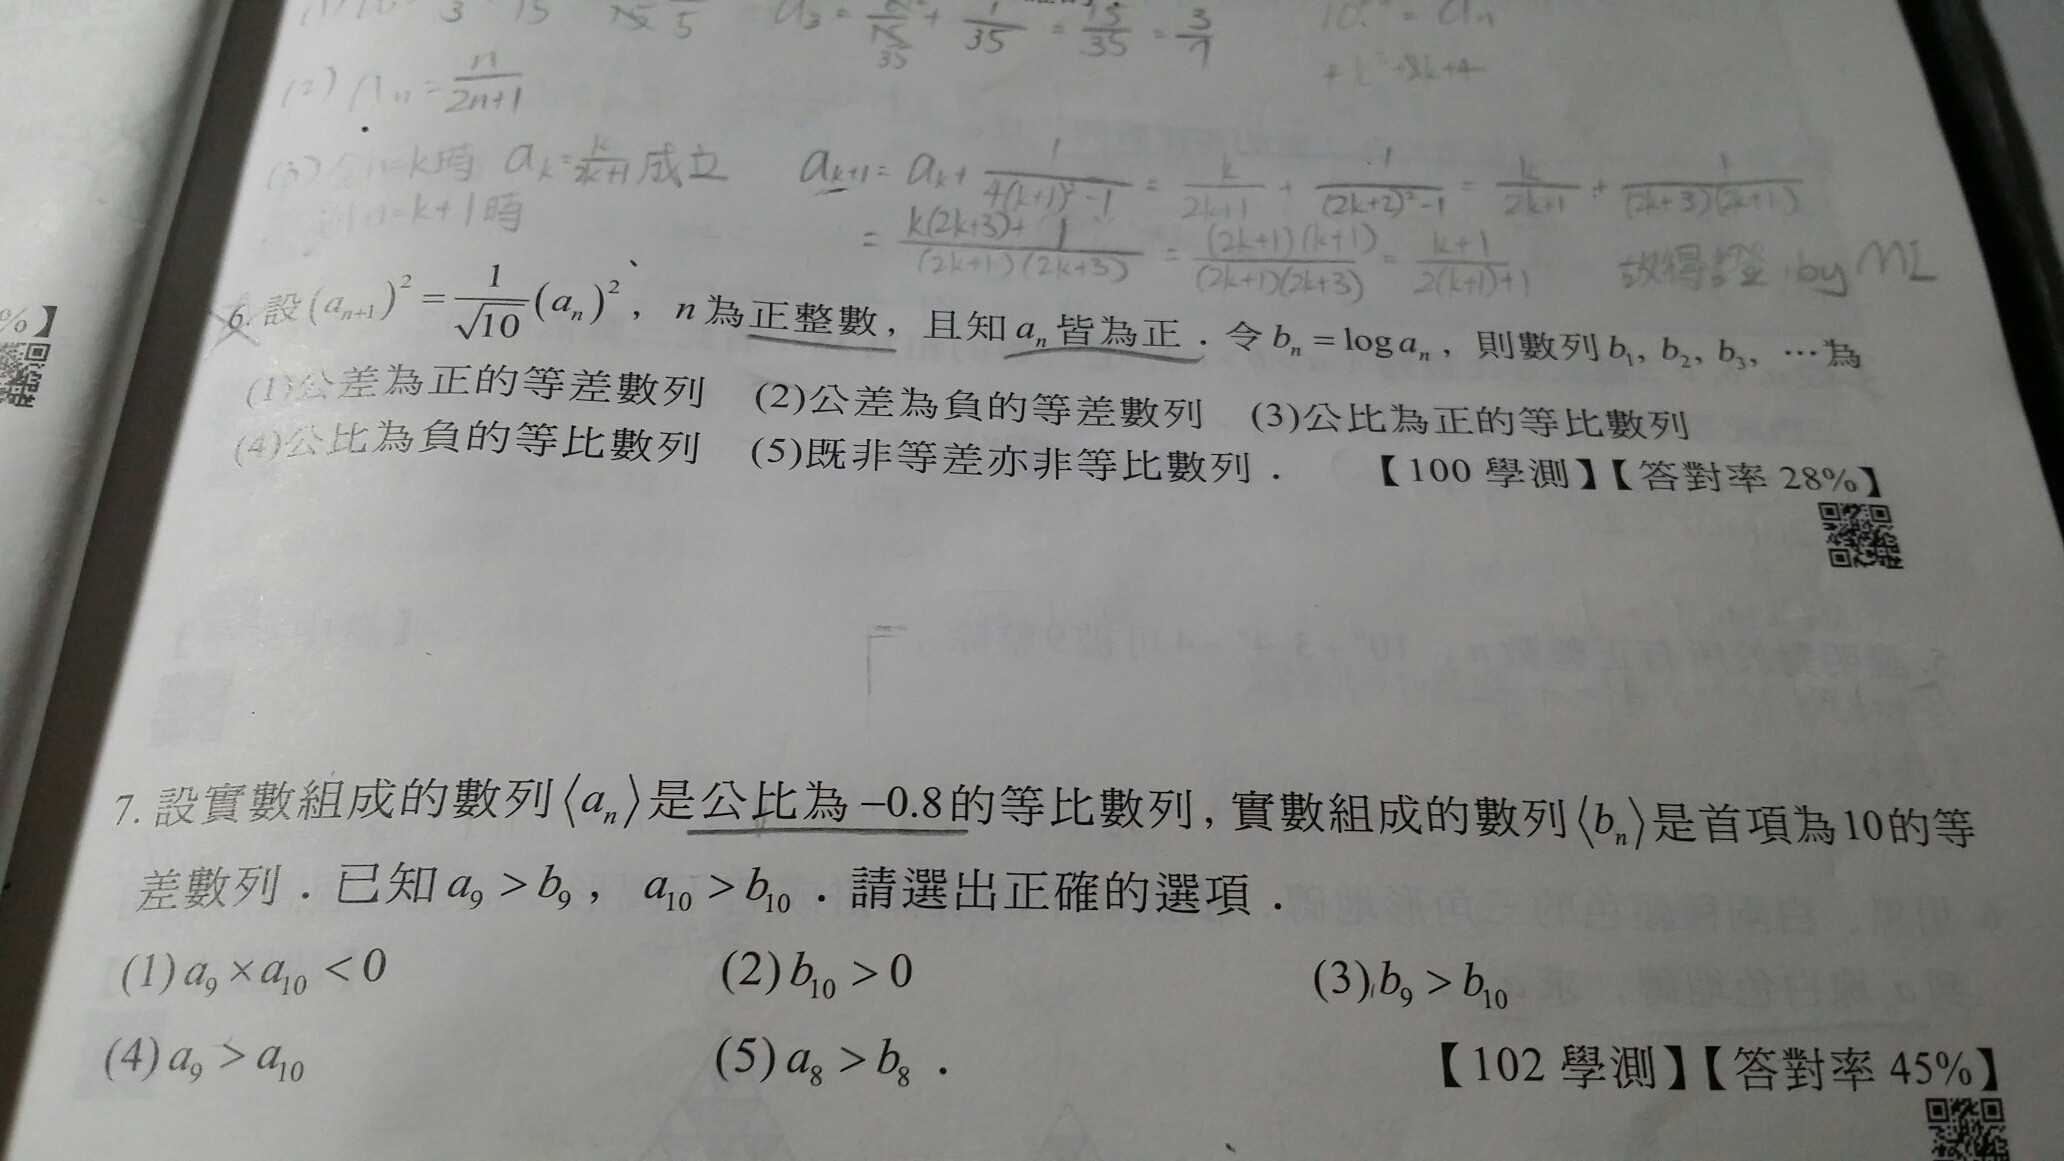 a₃ = + 1/35 = 15/35 = 3/7
(2) aₙ = n/(2n+1)
+ k²+8k+4
k時 aₖ = 成立 aₖ₊₁ = aₖ + 1/(4(k+1)²-1) = k/(2k+1) + 1/((2k+2)²-1) = k/(2k+1) + 1/((2k+3)(2k+1))
k+1時 = (k(2k+3)+1)/((2k+1)(2k+3)) = ((2k+1)(k+1))/((2k+1)(2k+3)) = (k+1)/(2(k+1)+1) 故得證 by MI
6. 設 (aₙ₊₁)² = 1/√10 (aₙ)², n 為正整數, 且知 aₙ 皆為正.令 bₙ = log aₙ, 則數列 b₁, b₂, b₃, …為
(1)公差為正的等差數列 (2)公差為負的等差數列 (3)公比為正的等比數列
(4)公比為負的等比數列 (5)既非等差亦非等比數列. 【100 學測】【答對率 28%】
%】
7. 設實數組成的數列⟨aₙ⟩是公比為 −0.8的等比數列, 實數組成的數列⟨bₙ⟩是首項為10的等
差數列.已知 a₉ > b₉, a₁₀ > b₁₀.請選出正確的選項.
(1) a₉ × a₁₀ < 0 (2) b₁₀ > 0 (3) b₉ > b₁₀
(4) a₉ > a₁₀ (5) a₈ > b₈. 【102 學測】【答對率 45%】